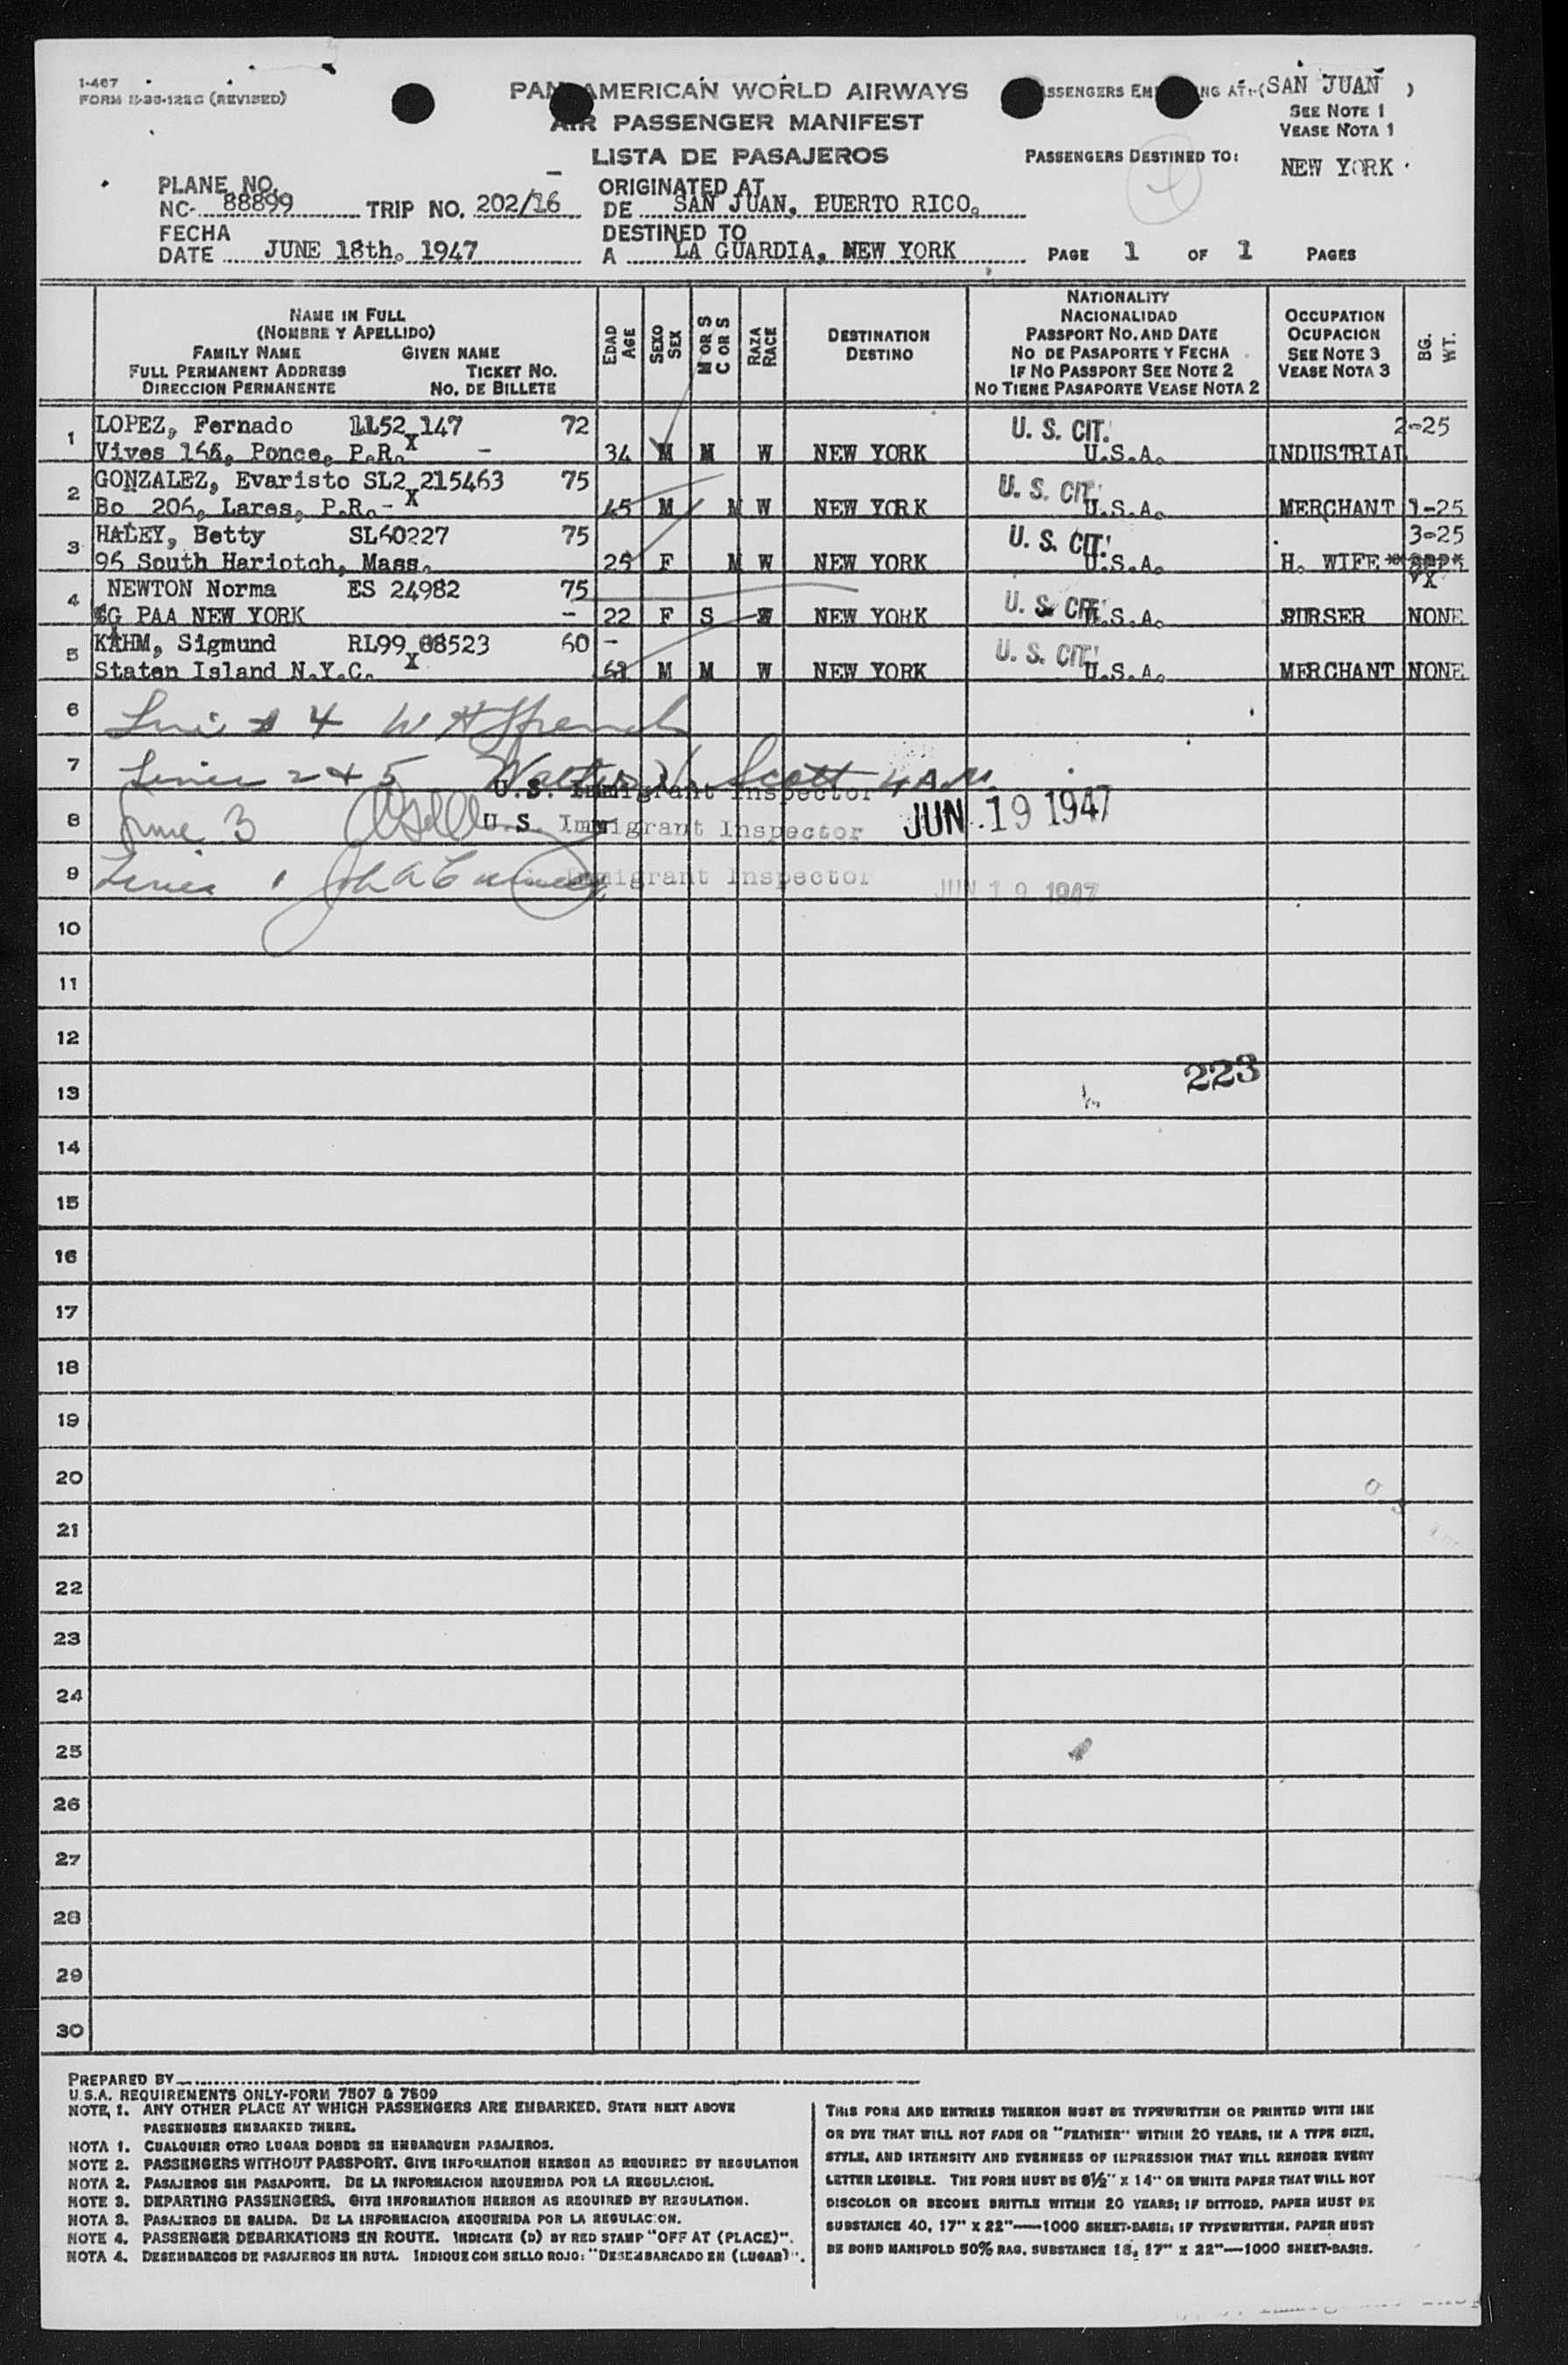 I-467
FORM (REVISED)
PAN AMERICAN WORLD AIRWAYS
AIR PASSENGER MANIFEST
LISTA DE PASAJEROS
PASSENGERS EMBARKING AT:-(SAN JUAN )
SEE NOTE 1
VEASE NOTA 1
PASSENGERS DESTINED TO:
NEW YORK
PLANE NO.
NC- 88899 TRIP NO. 202/16
ORIGINATED AT
DE SAN JUAN, PUERTO RICO.
FECHA
DATE JUNE 18th. 1947
DESTINED TO
A LA GUARDIA, NEW YORK
PAGE 1 OF 1 PAGES
NAME IN FULL
(NOMBRE Y APELLIDO)
FAMILY NAME GIVEN NAME
FULL PERMANENT ADDRESS TICKET NO.
DIRECCION PERMANENTE NO. DE BILLETE
EDAD
AGE
SEXO
SEX
M OR S
C OR S
RAZA
RACE
DESTINATION
DESTINO
NATIONALITY
NACIONALIDAD
PASSPORT NO. AND DATE
NO DE PASAPORTE Y FECHA
IF NO PASSPORT SEE NOTE 2
NO TIENE PASAPORTE VEASE NOTA 2
OCCUPATION
OCUPACION
SEE NOTE 3
VEASE NOTA 3
BG.
WT.
1 LOPEZ, Fernado 1152 147 72 U. S. CIT. 2-25
Vives Ponce, P.R. X - 34 M M W NEW YORK U.S.A. INDUSTRIAL
2 GONZALEZ, Evaristo SL2 215463 75 U. S. CIT.
Bo 206, Lares, P.R.- X 45 M M W NEW YORK U.S.A. MERCHANT 1-25
3 HALEY, Betty SL60227 75 U. S. CIT. 3-25
96 South Hariotch, Mass. 25 F M W NEW YORK U.S.A. H. WIFE
4 NEWTON Norma ES 24982 75 U. S. CIT.
PAA NEW YORK - 22 F S W NEW YORK U.S.A. PURSER NONE
5 KAHM, Sigmund RL99 88523 60 - U. S. CIT.
Staten Island N.Y.C. X 61 M M W NEW YORK U.S.A. MERCHANT NONE
6 Line # 4 W H
7 Lines 2 & 5 Scott 4 A.M.
U.S. Immigrant Inspector
8 Line 3 U.S. Immigrant Inspector JUN 19 1947
9 Lines 1 Immigrant Inspector JUN 19 1947
10
11
12
223
13
14
15
16
17
18
19
20
21
22
23
24
25
26
27
28
29
30
PREPARED BY
U.S.A. REQUIREMENTS ONLY-FORM 7507 & 7509
NOTE 1. ANY OTHER PLACE AT WHICH PASSENGERS ARE EMBARKED. STATE NEXT ABOVE
PASSENGERS EMBARKED THERE.
NOTA 1. CUALQUIER OTRO LUGAR DONDE SE EMBARQUEN PASAJEROS.
NOTE 2. PASSENGERS WITHOUT PASSPORT. GIVE INFORMATION HEREON AS REQUIRED BY REGULATION
NOTA 2. PASAJEROS SIN PASAPORTE. DE LA INFORMACION REQUERIDA POR LA REGULACION.
NOTE 3. DEPARTING PASSENGERS. GIVE INFORMATION HEREON AS REQUIRED BY REGULATION.
NOTA 3. PASAJEROS DE SALIDA. DE LA INFORMACION REQUERIDA POR LA REGULACION.
NOTE 4. PASSENGER DEBARKATIONS EN ROUTE. INDICATE (D) BY RED STAMP "OFF AT (PLACE)".
NOTA 4. DESEMBARCOS DE PASAJEROS EN RUTA. INDIQUE CON SELLO ROJO: "DESEMBARCADO EN (LUGAR)".
THIS FORM AND ENTRIES THEREON MUST BE TYPEWRITTEN OR PRINTED WITH INK
OR DYE THAT WILL NOT FADE OR "FEATHER" WITHIN 20 YEARS, IN A TYPE SIZE,
STYLE, AND INTENSITY AND EVENNESS OF IMPRESSION THAT WILL RENDER EVERY
LETTER LEGIBLE. THE FORM MUST BE 8½" X 14" ON WHITE PAPER THAT WILL NOT
DISCOLOR OR BECOME BRITTLE WITHIN 20 YEARS; IF DITTOED, PAPER MUST BE
SUBSTANCE 40, 17" X 22"—1000 SHEET-BASIS; IF TYPEWRITTEN, PAPER MUST
BE BOND MANIFOLD 50% RAG, SUBSTANCE 16, 17" X 22"—1000 SHEET-BASIS.